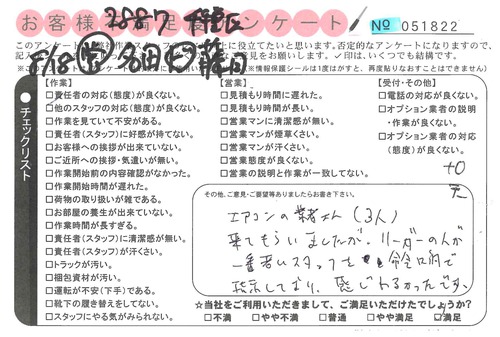 お客様満足度アンケート
№ 051822
【作業】
□責任者の対応(態度)が良くない。
□他のスタッフの対応(態度)が良くない。
□作業を見ていて不安がある。
□責任者(スタッフ)に好感が持てない。
□お客様への挨拶が出来ていない。
□ご近所への挨拶・気遣いが無い。
□作業開始前の内容確認がなかった。
□作業開始時間が遅れた。
□荷物の取り扱いが雑である。
□お部屋の養生が出来ていない。
□作業時間が長すぎる。
□責任者(スタッフ)に清潔感が無い。
□責任者(スタッフ)が汗くさい。
□トラックが汚い。
□梱包資材が汚い。
□運転が不安(下手)である。
□靴下の履き替えをしてない。
□スタッフにやる気がみられない。
【営業】
□見積もり時間に遅れた。
□見積もり時間が長い。
□営業マンに清潔感が無い。
□営業マンが煙草くさい。
□営業マンが汗くさい。
□営業態度が良くない。
□営業の説明と作業が一致してない。
【受付・その他】
□電話の対応が良くない。
□オプション業者の説明・作業が良くない。
□オプション業者の対応(態度)が良くない。
チェックリスト
その他、ご意見・ご要望等ありましたらお書き下さい。
エアコンの業者さん(3人)
来てもらいましたが、リーダーの人が
一番若いスタッフを
指示しており、感じわるかったです。
☆当社をご利用いただきまして、ご満足いただけたでしょうか?
□不満 □やや不満 □普通 □やや満足 □満足